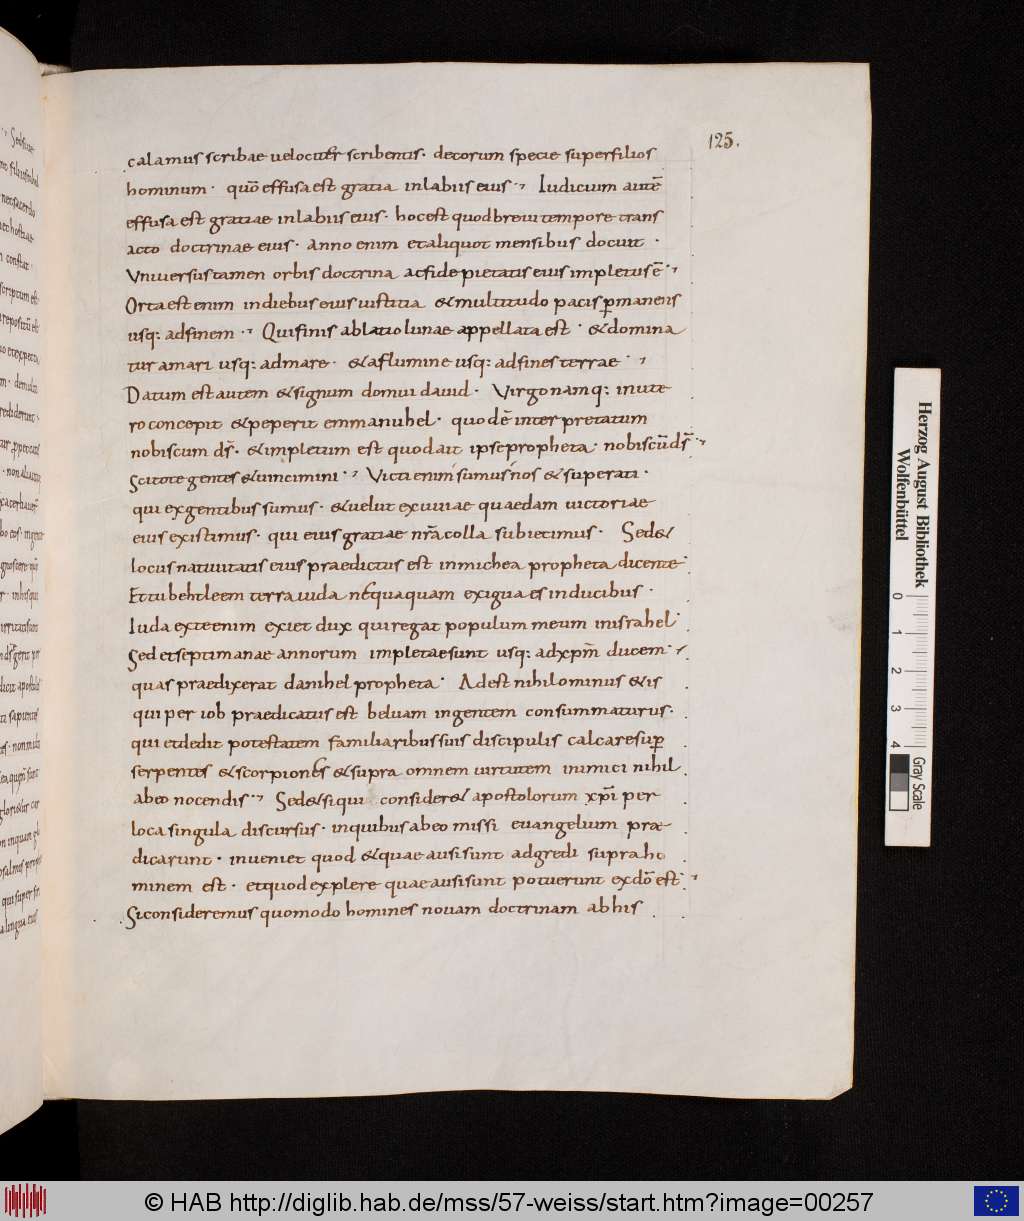 125.
calamus scribae velociter scribentis · decorum specie super filios
hominum · quō effusa est gratia in labiis eius · Iudicium autē
effusa est gratiae in labiis eius · hoc est quod brevi tempore trans
acto doctrinae eius · anno enim et aliquot mensibus docuit ·
Universus tamen orbis doctrina ac fide pietatis eius impletus ē ·
Orta est enim in diebus eius iustitia & multitudo pacis ꝑmanens
usq: ad finem · Qui finis ablatio lunae appellata est · & domina
tur a mari usq: ad mare · & a flumine usq: ad fines terrae ·
Datum est autem & signum domui david · Virgo namq: in ute
ro concepit & peperit emmanuhel · quod ē inter pretatum
nobiscum d̄s · & impletum est quod ait ipse propheta · nobiscū d̄s ·
Scitote gentes & vincimini · Victi enim sumus nos & superati ·
qui ex gentibus sumus · & velut exuviae quaedam victoriae
eius existimus · qui eius gratiae nr̄a colla subiecimus · Sed &
locus nativitatis eius praedictus est in michea propheta dicente
Et tu behtleem terra iuda nequaquam exigua es in ducibus ·
Iuda ex te enim exiet dux qui regat populum meum in israhel
Sed et septimanae annorum impletae sunt usq: ad xp̄m ducem ·
quas praedixerat danihel propheta · Adest nihilominus & is
qui per iob praedicatus est beluam ingentem consummaturus ·
qui et dedit potestatem familiaribus suis discipulis calcare suꝑ
serpentes & scorpiones & supra omnem virtutem inimici nihil
ab eo nocendis · Sed & si qui consider& apostolorum xp̄i per
loca singula discursus · in quibus ab eo missi evangelium prae
dicarunt · inveniet quod & quae ausi sunt adgredi supra ho
minem est · et quod explere quae ausi sunt potuerunt ex dō est ·
Si consideremus quomodo homines novam doctrinam ab his
Herzog August Bibliothek
Wolfenbüttel
0 1 2 3 4
Gray Scale
© HAB http://diglib.hab.de/mss/57-weiss/start.htm?image=00257